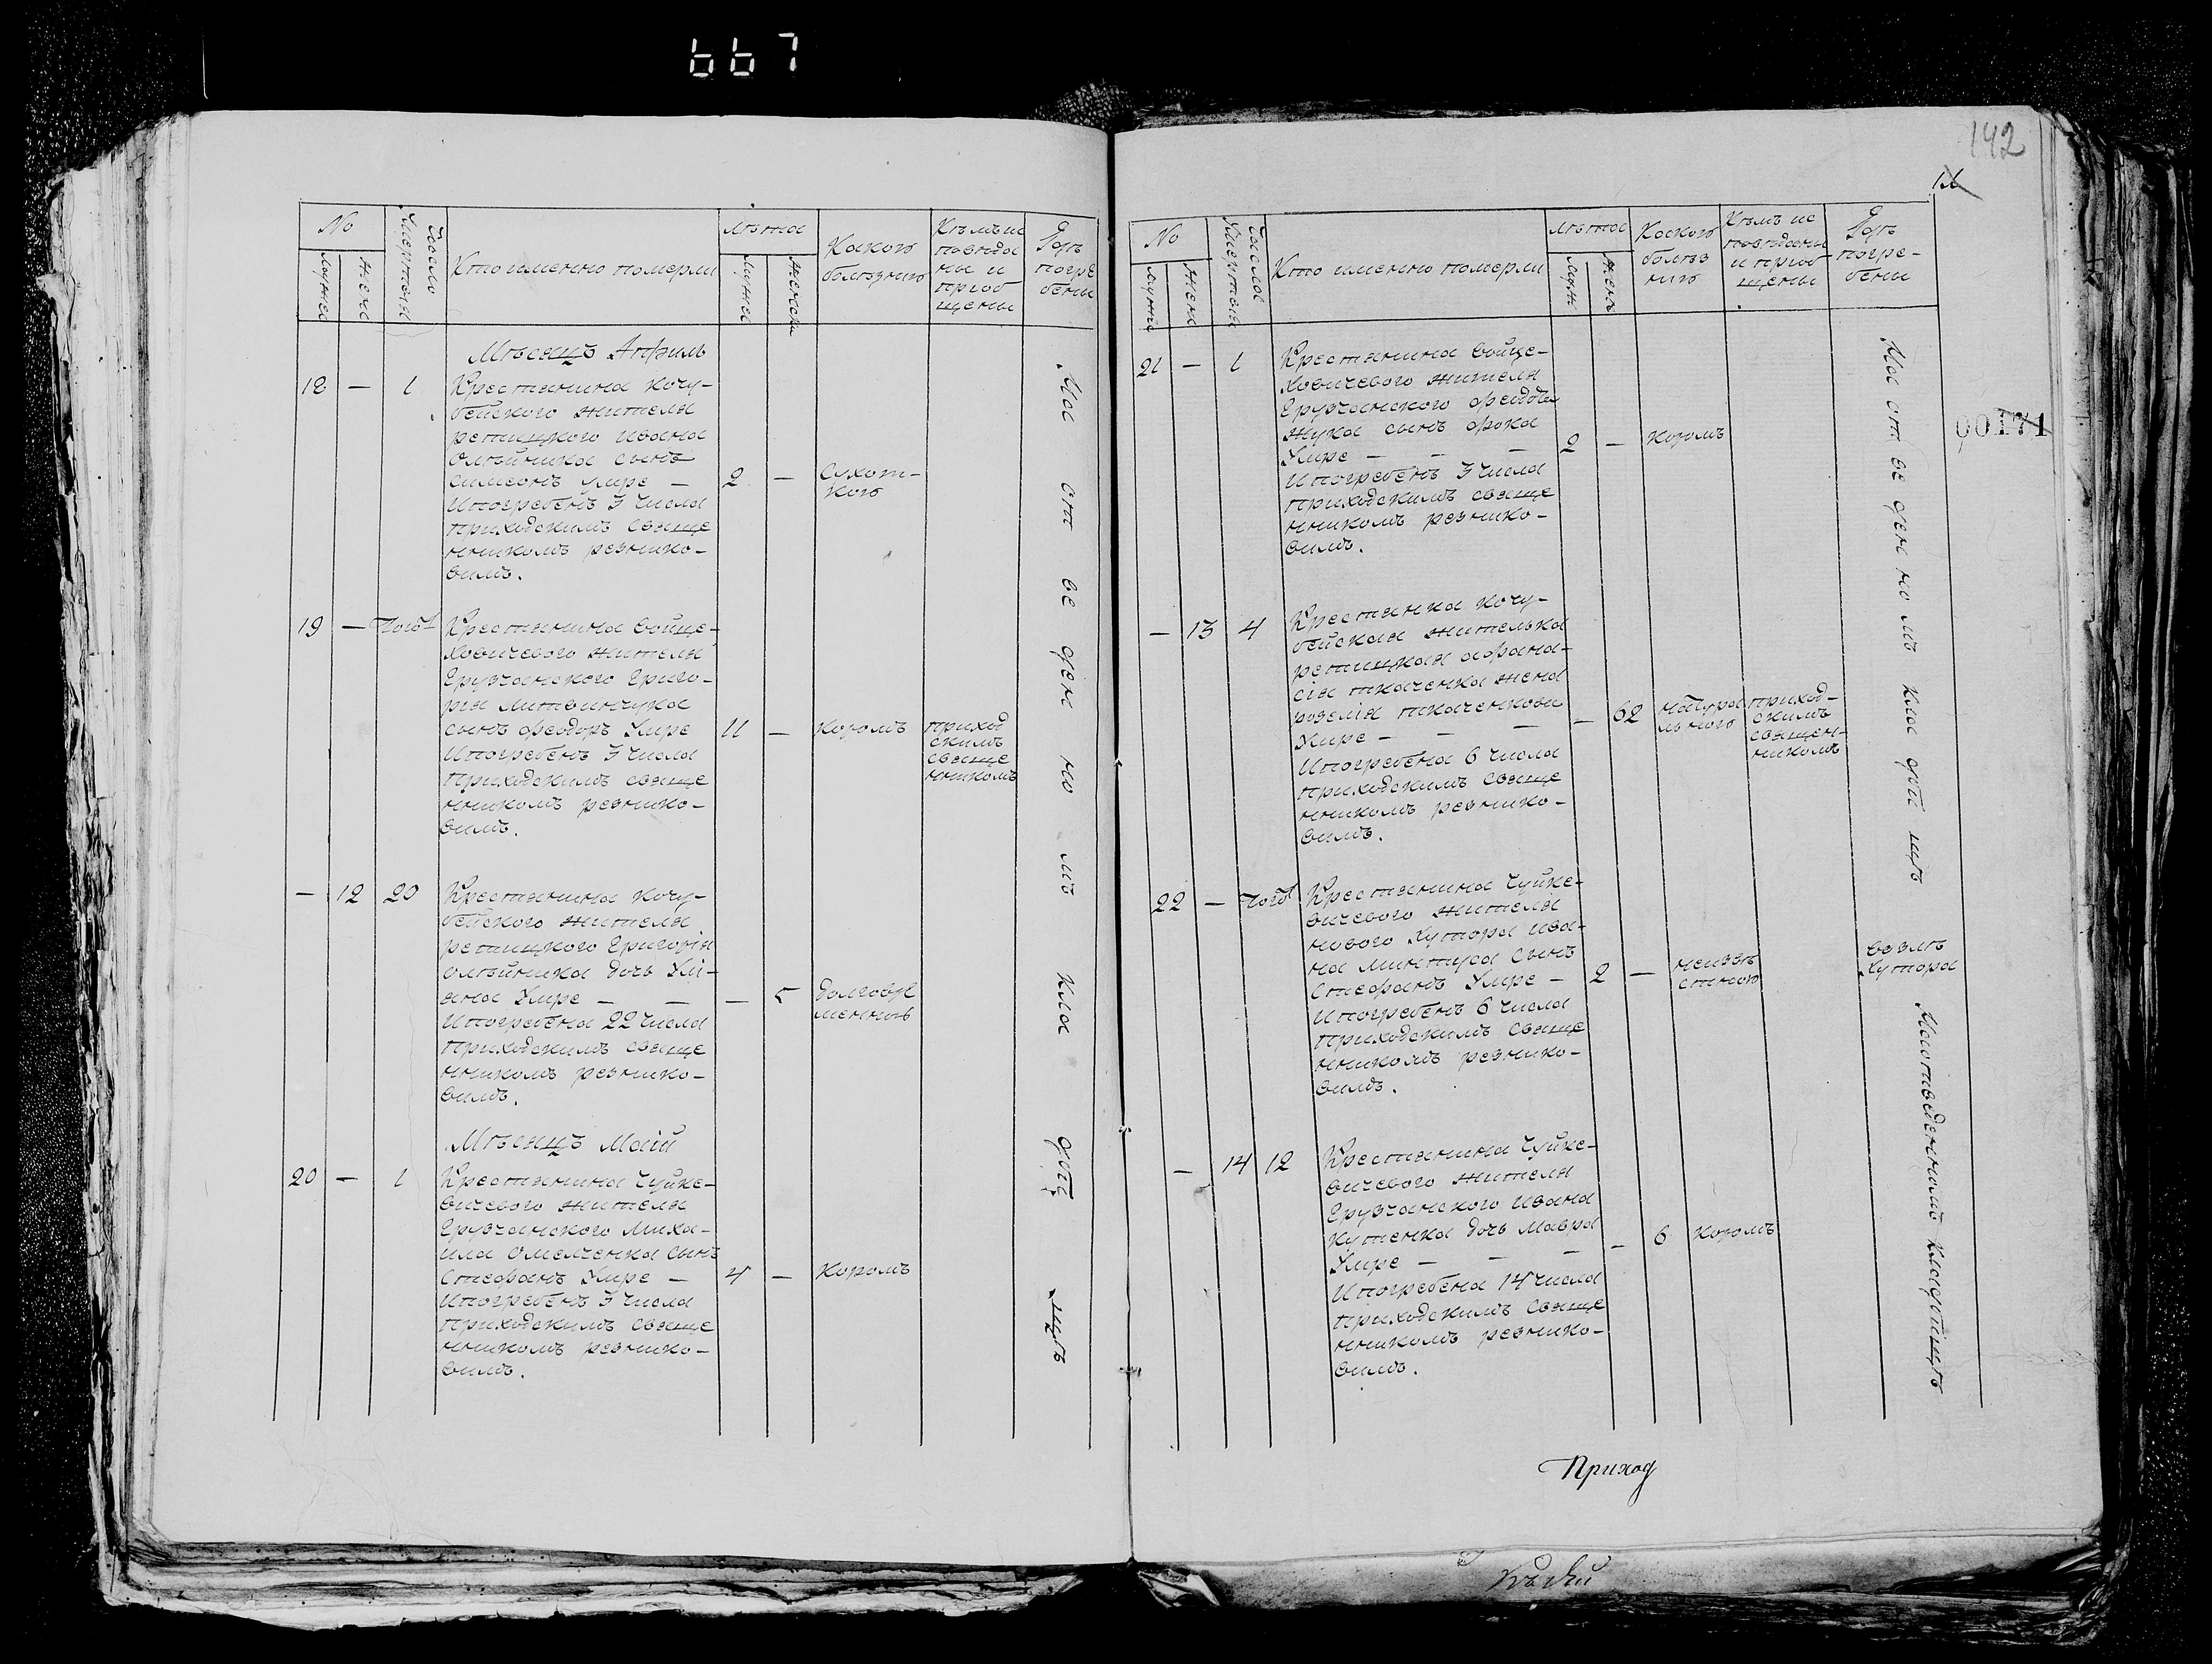 667
142
00171
No
мужес
женс
Число умертвія
Кто именно померли
Лѣта
мужес
женски
Какою
болѣзнию
Кѣмъ ис
повѣда
ны и
пріоб
щены
Гдѣ
погре
бены
Мѣсяцъ Априль
18 — 1
Крестянина кочу-
бейского жителя
ретицкого ивана
Олѣйника сынъ
симеонъ умре —
И погребенъ 3 числа
приходскимъ свяще
нникомъ резнико-
вимъ.
2 —
Сухот-
кою
19 — Того
Крестянина войце-
ховичевого жителя
Грузчанского Григо-
рія литвинчука
сынъ феодоръ Умре
И погребенъ 3 числа
Приходскимъ свяще
нникомъ резнико-
вимъ.
11 —
Коромъ
приход
скимъ
свяще
нникомъ
— 12 20
Крестянина кочу-
бейского жителя
ретицкого Григорія
олѣйника дочь Улі-
яна Умре — —
И погребена 22 числа
Приходскимъ свяще
нникомъ резнико-
вимъ.
— 5
долговре
менною
Мѣсяцъ Маій
20 — 1
Крестянина Чуйке-
вичевого жителя
Грузчанского Миха-
ила Омелченка сынъ
Стефанъ Умре —
И погребенъ 3 числа
Приходскимъ свяще
нникомъ резнико-
вимъ.
4 —
Коромъ
На от ве ден но мъ кла дби щѣ
No
мужес
женс
Числа умертвія
Кто именно померли
Лѣта
муж
женс
Какою
болѣз
нию
Кѣмъ ис
повѣданы
и пріоб
щены
Гдѣ
погре-
бены
21 — 1
Крестянина войце-
ховичевого жителя
Грузчанского феодота
жука сынъ фока
Умре — — —
И погребенъ 3 числа
приходскимъ свяще
нникомъ резнико-
вимъ.
2 —
коромъ
— 13 4
Крестянка кочу-
бейская жителька
ретицкая афана-
сія ткаченка жена
розалія ткаченкова
Умре — — —
И погребена 6 числа
приходскимъ свяще
нникомъ резнико-
вимъ.
— 62
натура
льною
приход-
скимъ
священ-
никомъ
22 — Того
Крестянина Чуйке-
вичевого жителя
нового Хутора ива-
на минтуса сынъ
Стефанъ Умре —
И погребенъ 6 числа
Приходскимъ свяще
нникомъ резнико-
вимъ.
2 —
неизвѣ
стною
возлѣ
Хутора
— 14 12
Крестянина Чуйке-
вичевого жителя
Грузчанского ивана
кутенка дочь Мавра
Умре — — —
И погребена 14 числа
Приходскимъ Свяще
нникомъ резнико-
вимъ.
— 6
коромъ
На от ве ден но мъ кла дби щѣ
На отведенномъ кладбищѣ
Приход